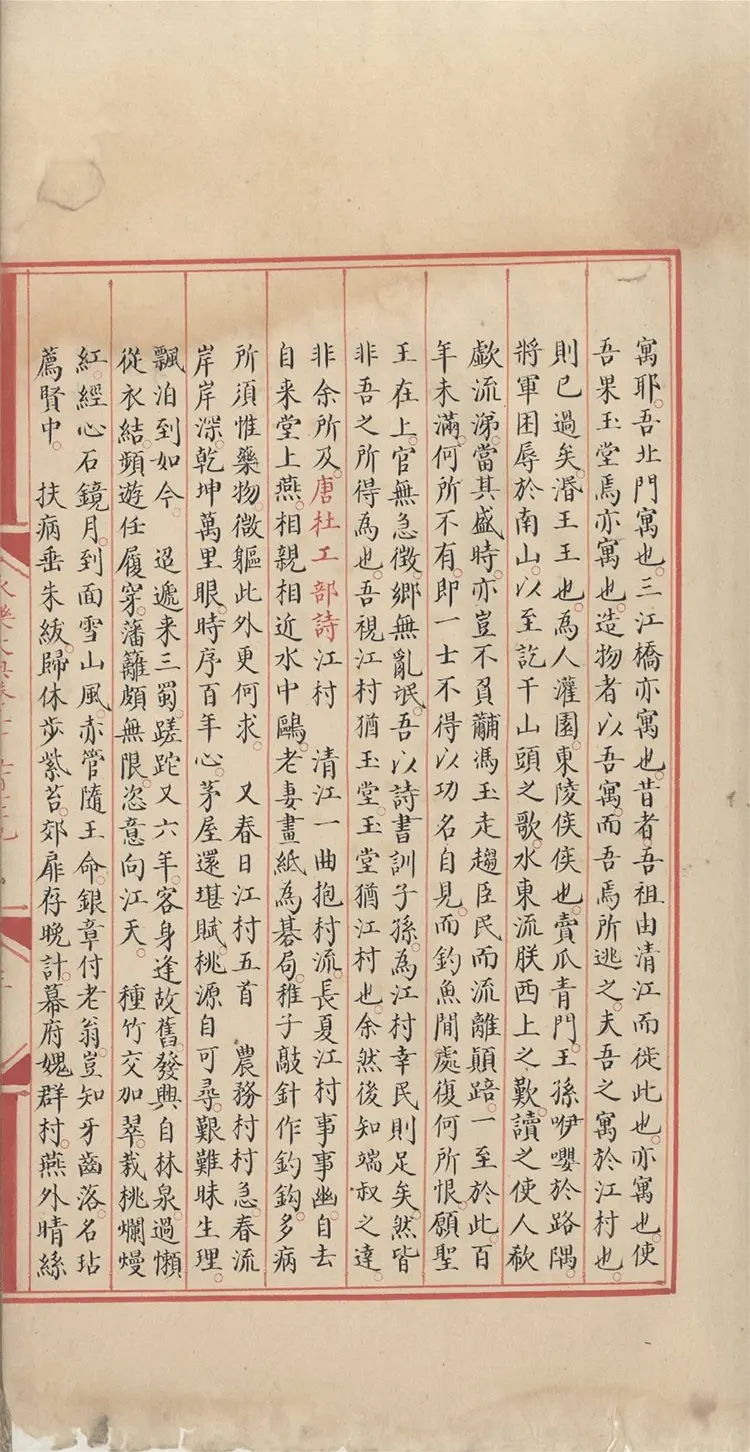 寓耶。吾北門寓也。三江橋亦寓也。昔者吾祖由清江而徙此也。亦寓也。使
吾果玉堂焉亦寓也。造物者以吾寓。而吾焉所逃之。夫吾之寓於江村也。
則已過矣。湣王王也。為人灌園。東陵侯侯也。賣瓜青門。王孫咿嚶於路隅。
將軍困辱於南山。以至訖干山頭之歌。水東流朕西上之歎。讀之使人欷
歔流涕。當其盛時。亦豈不負黼馮玉走趨臣民。而流離顛踣。一至於此。百
年未滿。何所不有。即一士不得以功名自見。而釣魚閒處。復何所恨。願聖
王在上。官無急徵。鄉無亂氓。吾以詩書訓子孫。為江村幸民則足矣。然皆
非吾之所得為也。吾視江村猶玉堂。玉堂猶江村也。余然後知端叔之達。
非余所及。唐杜工部詩江村 清江一曲抱村流。長夏江村事事幽。自去
自来堂上燕。相親相近水中鷗。老妻畫紙為碁局。稚子敲針作釣鈎。多病
所須惟藥物。微軀此外更何求。 又春日江村五首 農務村村急。春流
岸岸深。乾坤萬里眼。時序百年心。茅屋還堪賦。桃源自可尋。艱難昧生理。
飄泊到如今。 迢遞来三蜀。蹉跎又六年。客身逢故舊。發興自林泉。過懶
從衣結。頻遊任履穿。藩籬頗無限。恣意向江天。 種竹交加翠。栽桃爛熳
紅。經心石鏡月。到面雪山風。赤管隨王命。銀章付老翁。豈知牙齒落。名玷
薦賢中。 扶病垂朱紱。歸休步紫苔。郊扉存晚計。幕府媿群村。燕外晴絲